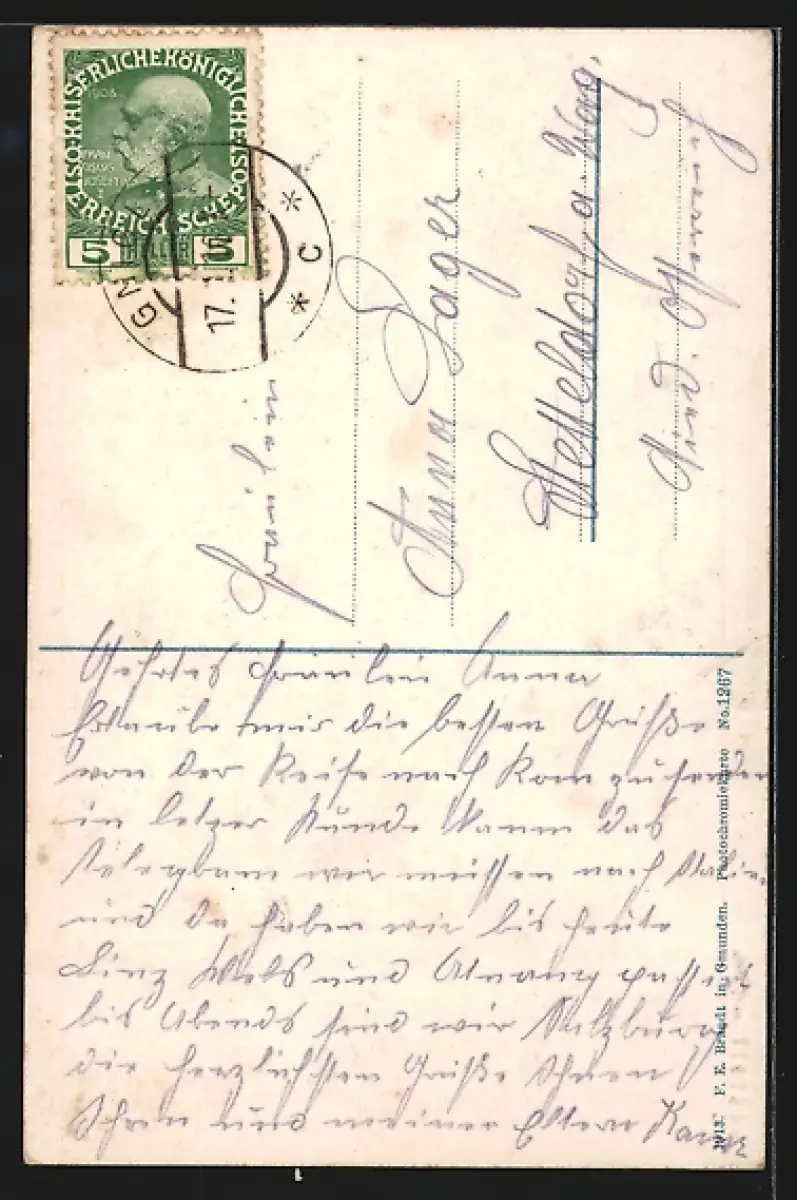 KAISERLICHEKÖNIGLICHE ÖSTERREICHISCHE POST
1908
FRANCISCUS JOSEPHUS I
5 HELLER 5
GM
17.
* C *
Fräulein
Anna Jager
Hetteldorf a. Wag.
Geehrtes Fräulein Anna
Erlaube mir die besten Grüße
von der Reise nach Rom zu senden
in letzer Stunde kamm das
Telegram wir müssen nach Italien
und da haben wir bis heute
Linz Wels und Atnang passirt
bis Abends sind wir Salzburg
die herzlichsten Grüße Ihnen
Ihren und meiner Eltern
1913. F. E. Brandt in Gmunden. Photochromiekarte No.1267